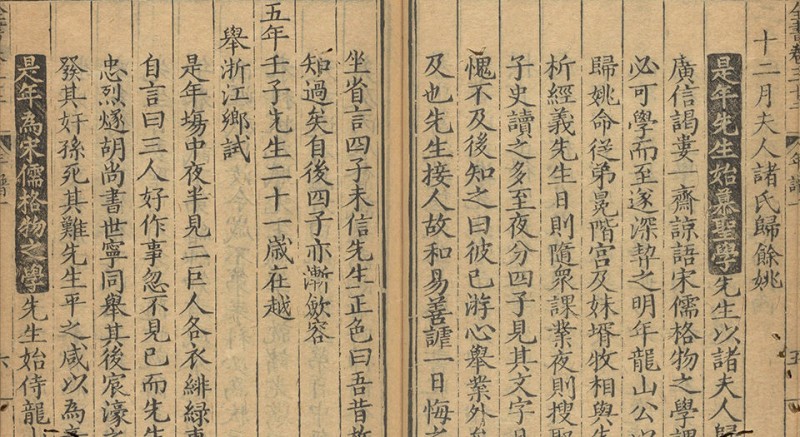 十二月夫人諸氏歸餘姚
是年先生始慕聖學先生以諸夫人歸
廣信謁婁一齋諒語宋儒格物之學謂
必可學而至遂深契之明年龍山公以
歸姚命從弟冕階宮及妹壻牧相與先
析經義先生日則隨衆課業夜則搜取
子史讀之多至夜分四子見其文字日
愧不及後知之曰彼已游心舉業外
及也先生接人故和易善謔一日悔之
五
坐省言四子未信先生正色曰吾昔放
知過矣自後四子亦漸斂容
五年壬子先生二十一歲在越
舉浙江鄉試
是年塲中夜半見二巨人各衣緋緑東
自言曰三人好作事忽不見已而先生
忠烈燧胡尚書世寧同舉其後宸濠之
發其奸孫死其難先生平之咸以為
是年為宋儒格物之學先生始侍龍
六